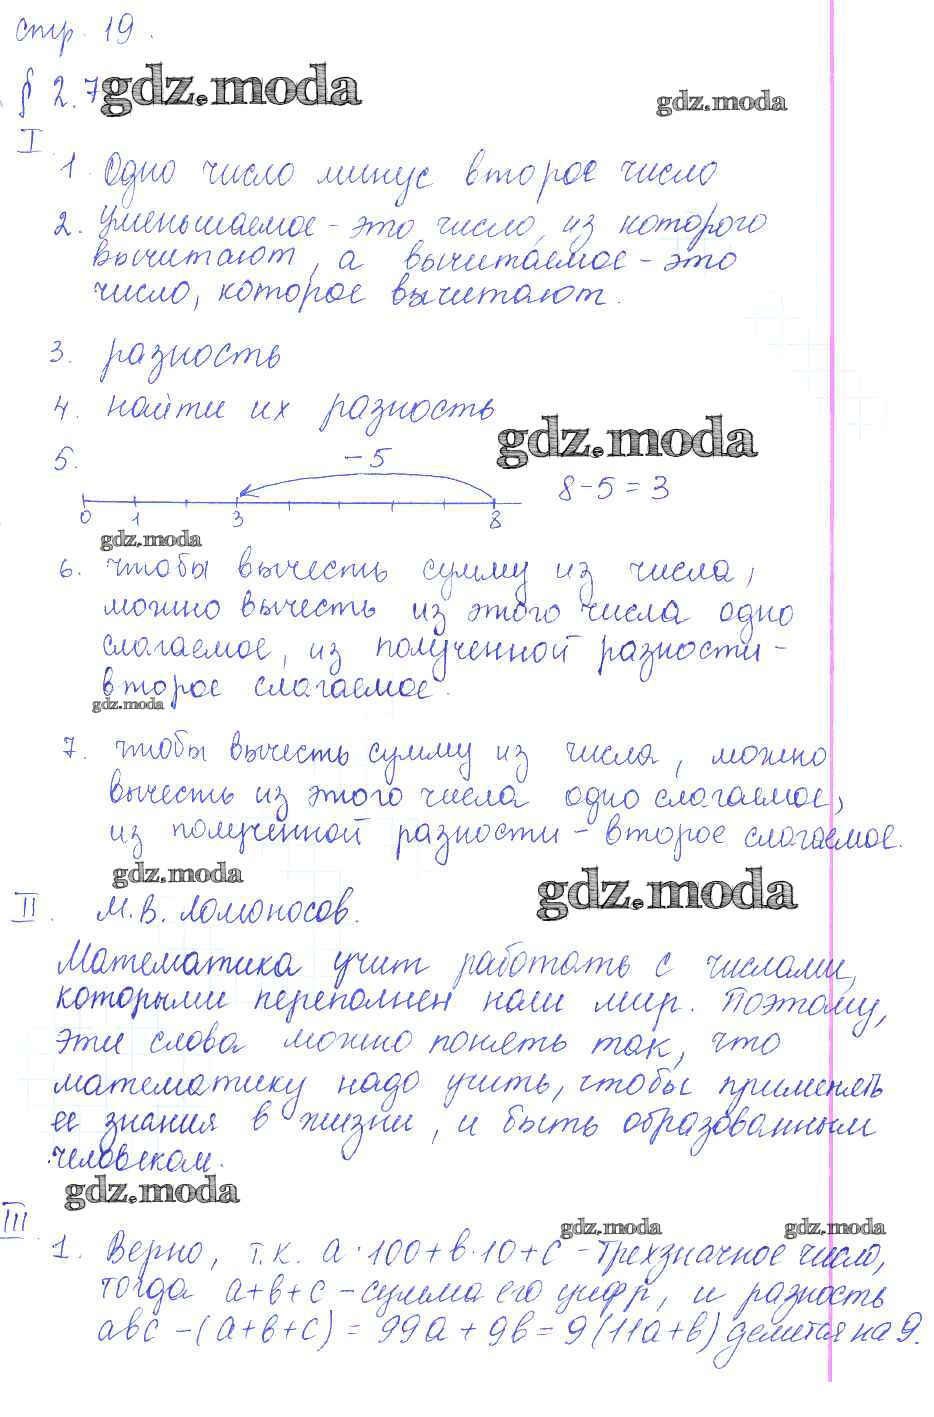 стр. 19.
§ 2.7 gdz.moda
gdz.moda
I
1. Одно число минус второе число
2. Уменьшаемое - это число, из которого
вычитают, а вычитаемое - это
число, которое вычитают.
3. разность
4. найти их разность
gdz.moda
5. -5
8-5=3
0 1 3 8
gdz.moda
6. чтобы вычесть сумму из числа,
можно вычесть из этого числа одно
слагаемое, из полученной разности -
второе слагаемое.
gdz.moda
7. чтобы вычесть сумму из числа, можно
вычесть из этого числа одно слагаемое,
из полученной разности - второе слагаемое.
gdz.moda
gdz.moda
II. М.В. Ломоносов.
Математика учит работать с числами,
которыми переполнен наш мир. Поэтому,
эти слова можно понять так, что
математику надо учить, чтобы применять
ее знания в жизни, и быть образованным
человеком.
gdz.moda
III
gdz.moda
gdz.moda
1. Верно, т.к. a·100+b·10+c - трехзначное число,
тогда a+b+c - сумма его цифр, и разность
abc - (a+b+c) = 99a + 9b = 9(11a+b) делится на 9.